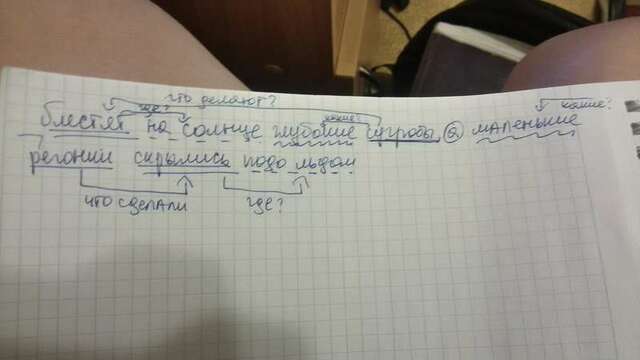 что делают?
где? какие? какие?
блестят на солнце глубокие сугробы а маленькие
регонии скрылись подо льдом
что сделали где?